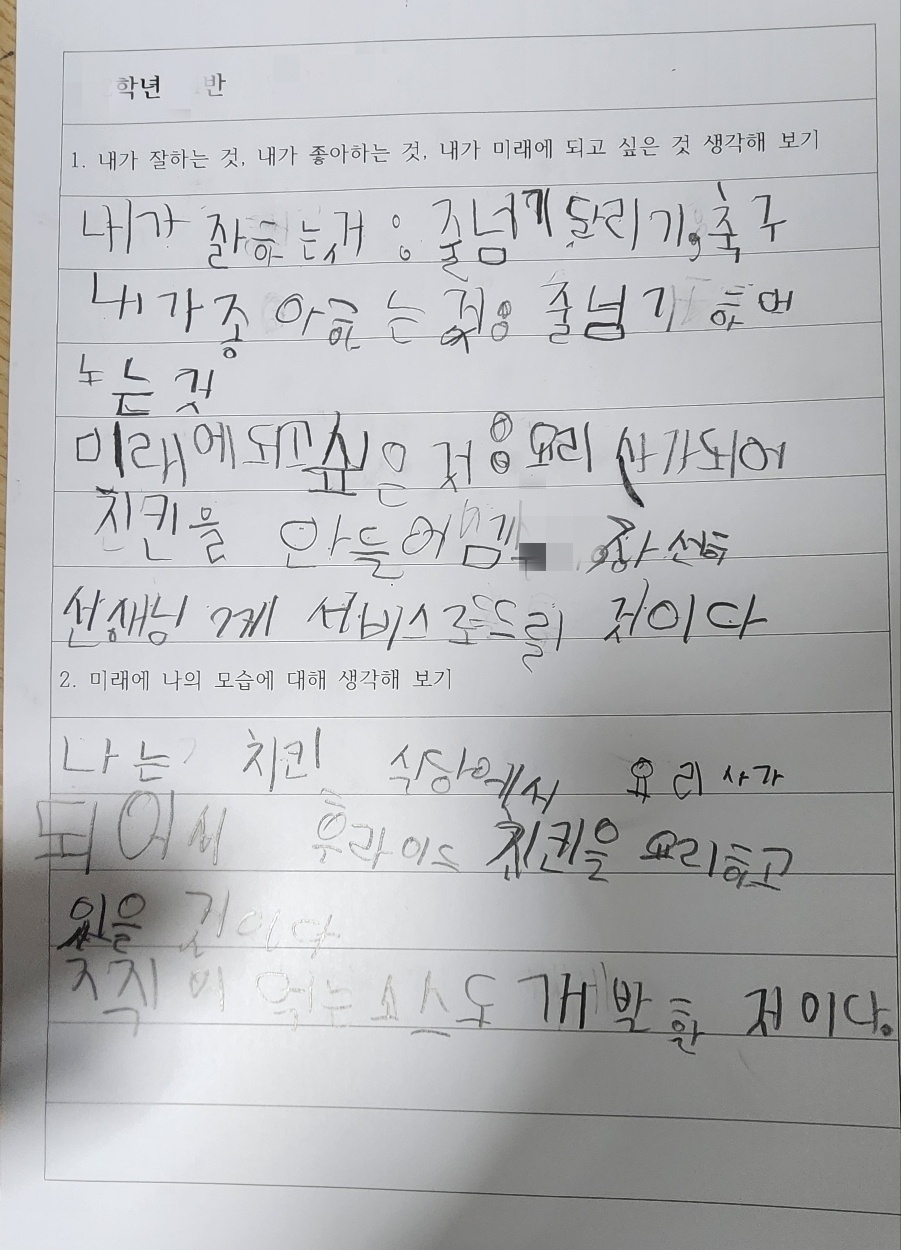 학년 반
1. 내가 잘하는 것, 내가 좋아하는 것, 내가 미래에 되고 싶은 것 생각해 보기
내가 잘하는거 : 줄넘기 달리기, 축구
내가 좋아하는 것: 줄넘기 하며
노는 것
미래에 되고 싶은 거: 요리 사가되어
치킨을 만들어
선생님 께 서비스로 드릴 것이다
2. 미래에 나의 모습에 대해 생각해 보기
나는 치킨 식당에서 요리사가
되어서 후라이드 치킨을 요리하고
있을 것이다
먹는 소스도 개발할 것이다.